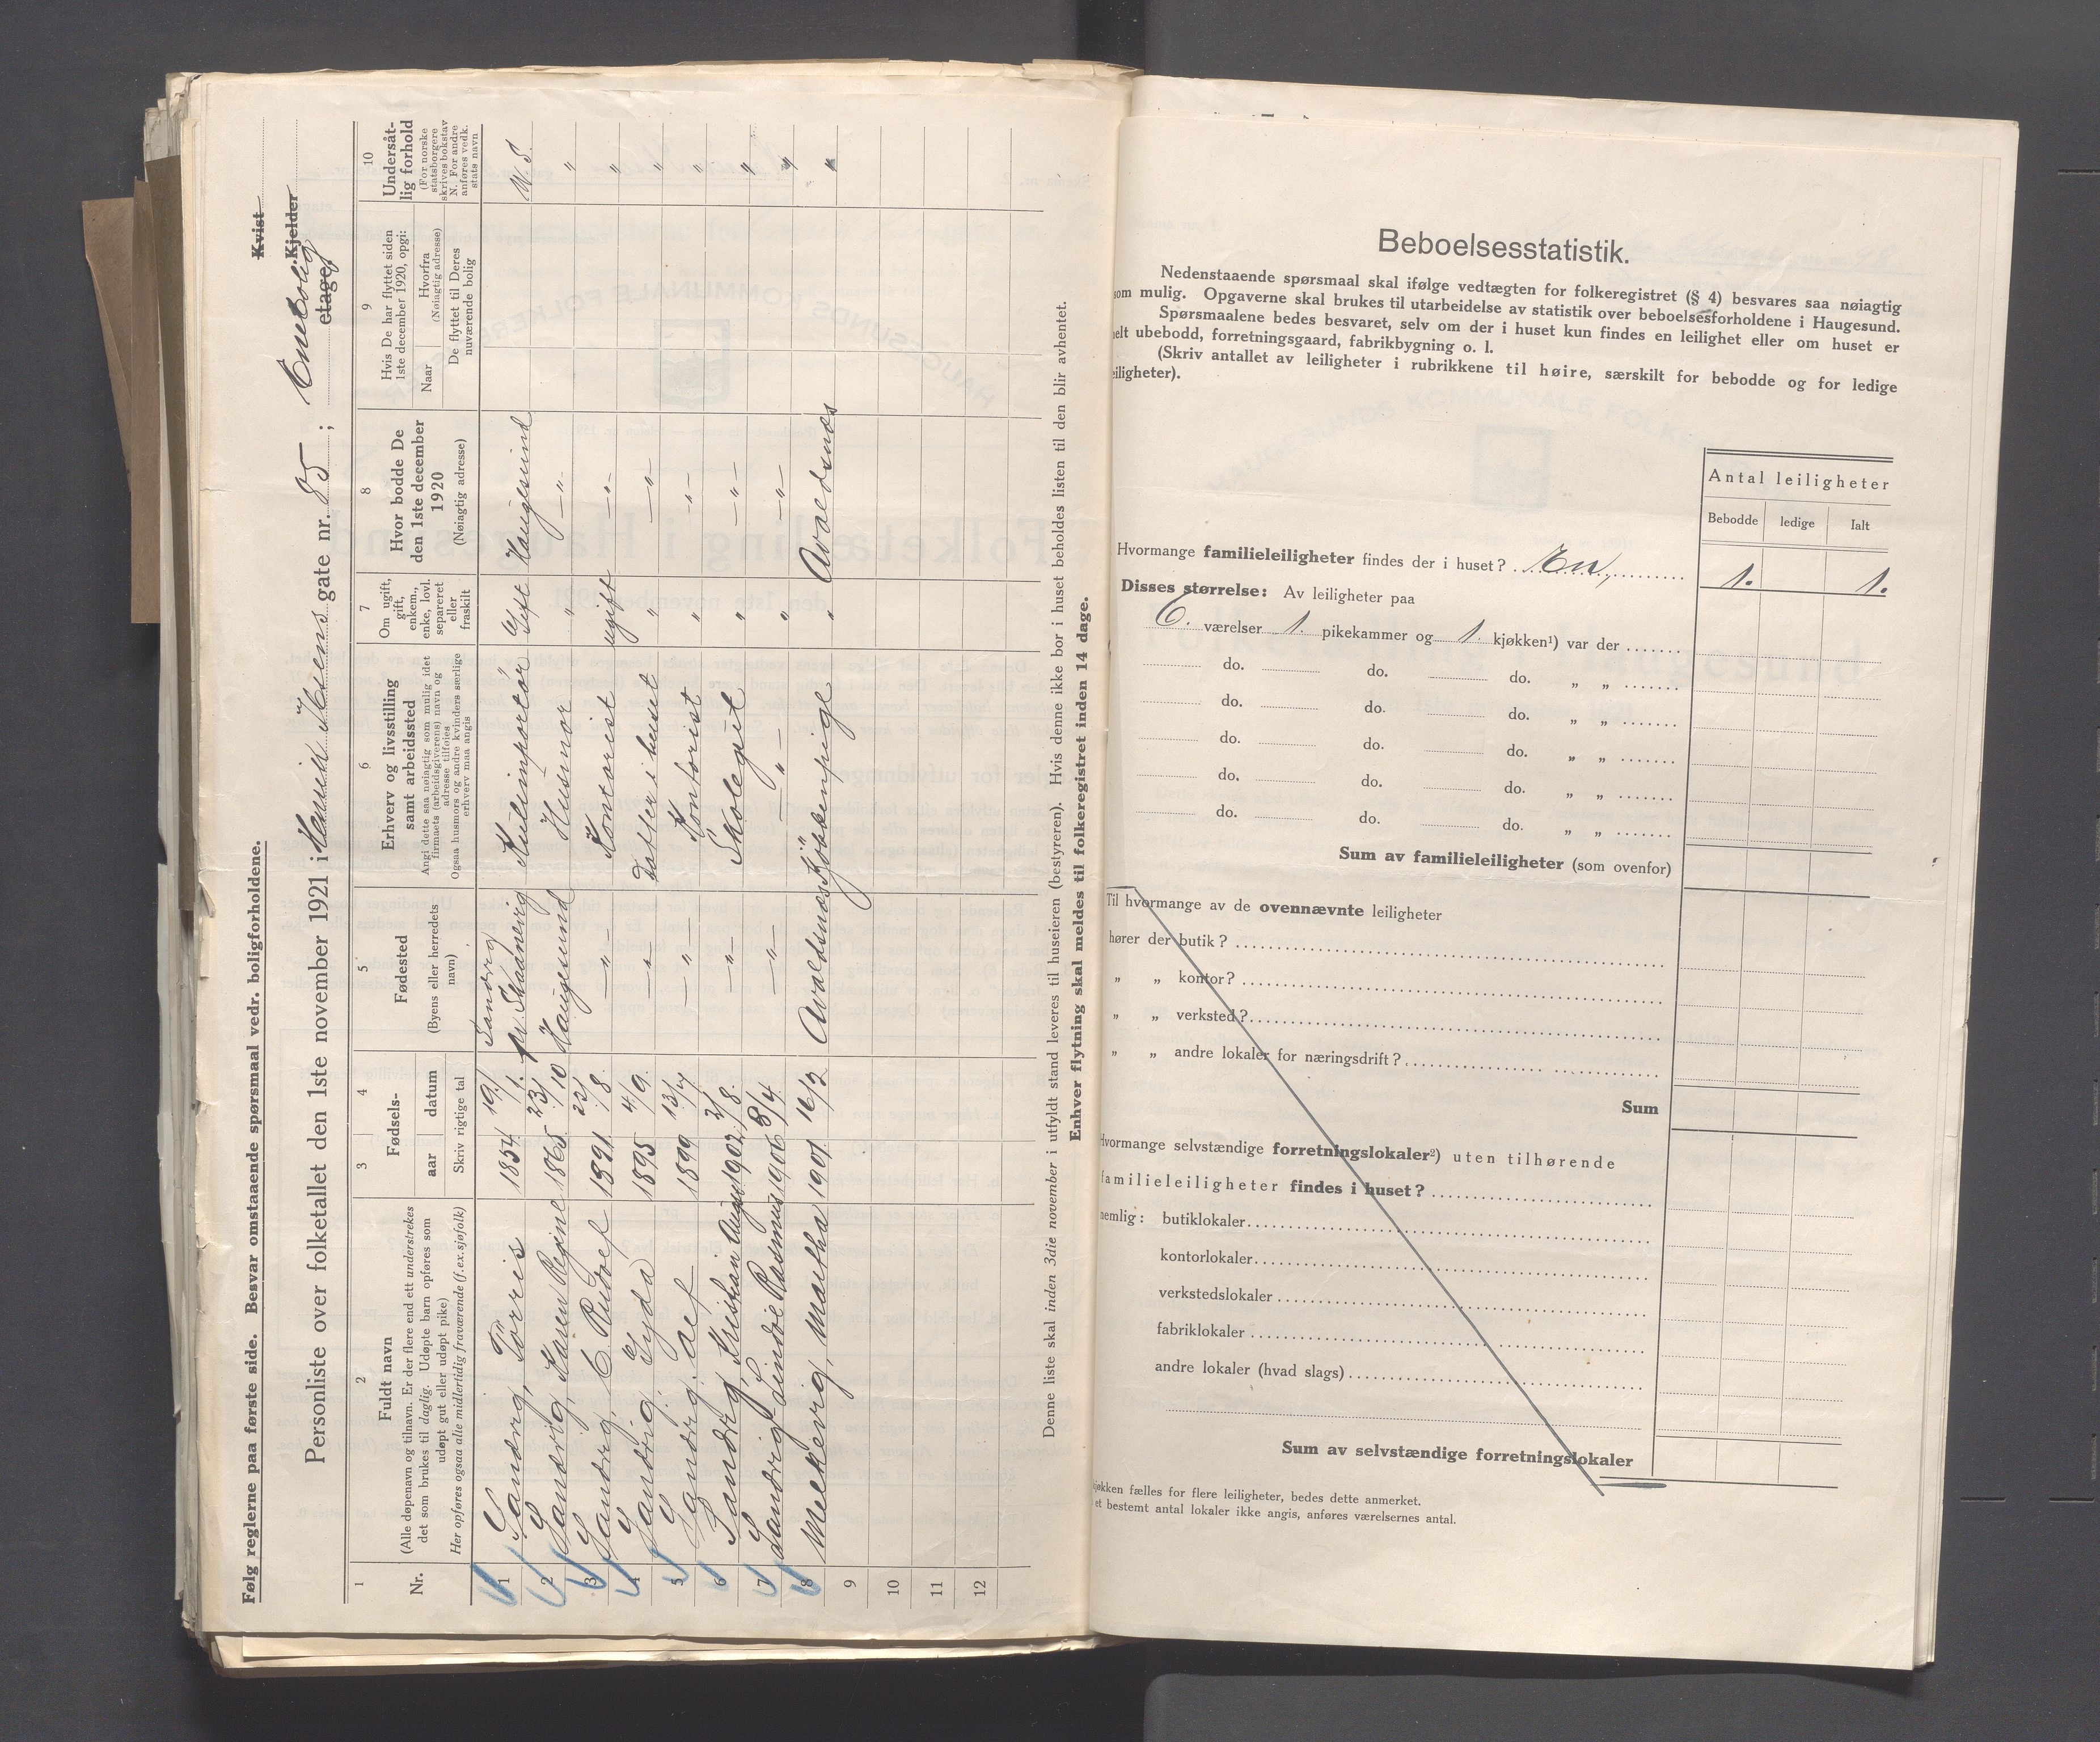 Følg reglerne paa første side. Besvar omstaaende spørsmaal vedr. boligforholdene.
Kvist
Kjelder
Personliste over folketallet den 1ste november 1921 i Henrik Ibsens gate nr. 85 ; Enebolig etage.
1 2 3 4 5 6 7 8 9 10
Nr.
Fuldt navn
(Alle døpenavn og tilnavn. Er der flere end ett understrekes
det som brukes til daglig. Udøpte barn opføres som
udøpt gut eller udøpt pike)
Her opføres ogsaa alle midlertidig fraværende (f.ex. sjøfolk)
Fødsels-
aar datum
Skriv rigtige tal
Fødested
(Byens eller herredets
navn)
Erhverv og livsstilling
samt arbeidssted
Angi dette saa nøiagtig som mulig idet
firmaets (arbeidsgiverens) navn og
adresse tilføies
Ogsaa husmors og andre kvinders særlige
erhverv maa angis
Om ugift,
gift,
enkem.,
enke, lovl.
separeret
eller
fraskilt
Hvor bodde De
den 1ste december
1920
(Nøiagtig adresse)
Hvis De har flyttet siden
1ste december 1920, opgi:
Naar
Hvorfra
(Nøiagtig adresse)
De flyttet til Deres
nuværende bolig
Undersåt-
lig forhold
(For norske
statsborgere
skrives bokstav
N. For andre
anføres vedk.
stats navn
1 Sandvig, Torris 1854 19/1. Sandvig pr. Skaanevig Gift Haugesund
2 Sandvig, Karen Regine 1865 23/10 Haugesund Husmor " —"— "
3 Sandvig, C. Rudolf 1891 22/8. —"— Kontorist ugift —"— "
4 Sandvig, Gyda 1895 4/9. —"— Datter i huset " —"— "
5 Sandvig, Alf 1899 13/7 —"— Kontorist " —"— "
6 Sandvig, Kristian August 1902 2/8. —"— Skolegut " —"— "
7 Sandvig Sindre Rasmus 1906 8/4 —"— —"— " —"— "
8 Melkevig, Martha 1901 16/2 Avaldsnes Kjøkkenpige " Avaldsnes "
9
10
11
12
Denne liste skal inden 3die november i utfyldt stand leveres til huseieren (bestyreren). Hvis denne ikke bor i huset beholdes listen til den blir avhentet.
Enhver flytning skal meldes til folkeregistret inden 14 dage.
Beboelsesstatistik.
Nedenstaaende spørsmaal skal ifølge vedtægten for folkeregistret (§ 4) besvares saa nøiagtig
som mulig. Opgaverne skal brukes til utarbeidelse av statistik over beboelsesforholdene i Haugesund.
Spørsmaalene bedes besvaret, selv om der i huset kun findes en leilighet eller om huset er
helt ubebodd, forretningsgaard, fabrikbygning o. l.
(Skriv antallet av leiligheter i rubrikkene til høire, særskilt for bebodde og for ledige
leiligheter).
Antal leiligheter
Bebodde ledige Ialt
Hvormange familieleiligheter findes der i huset? En, 1. 1.
Disses størrelse: Av leiligheter paa
6. værelser 1. pikekammer og 1. kjøkken¹) var der
do. do. do. „ „
do. do. do. „ „
do. do. do. „ „
do. do. do. „ „
do. do. do. „ „
Sum av familieleiligheter (som ovenfor)
Til hvormange av de ovennævnte leiligheter
hører der butik?
„ „ kontor?
„ „ verksted?
„ „ andre lokaler for næringsdrift?
Sum
Hvormange selvstændige forretningslokaler²) uten tilhørende
familieleiligheter findes i huset?
nemlig: butiklokaler
kontorlokaler
verkstedslokaler
fabriklokaler
andre lokaler (hvad slags)
Sum av selvstændige forretningslokaler
kjøkken fælles for flere leiligheter, bedes dette anmerket.
et bestemt antal lokaler ikke angis, anføres værelsernes antal.